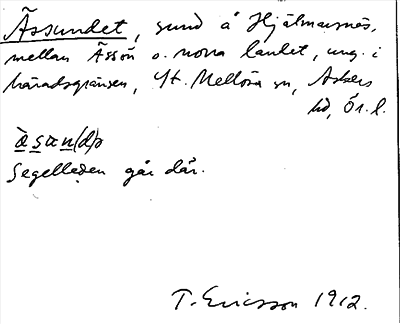 Ässundet, sund å Hjälmaresnäs,
mellan Ässön o. norra landet, ung. i
häradsgränsen, St. Mellösa sn, Askers
hd, Ör. l.
Segelleden går där.
T. Ericsson 1912.